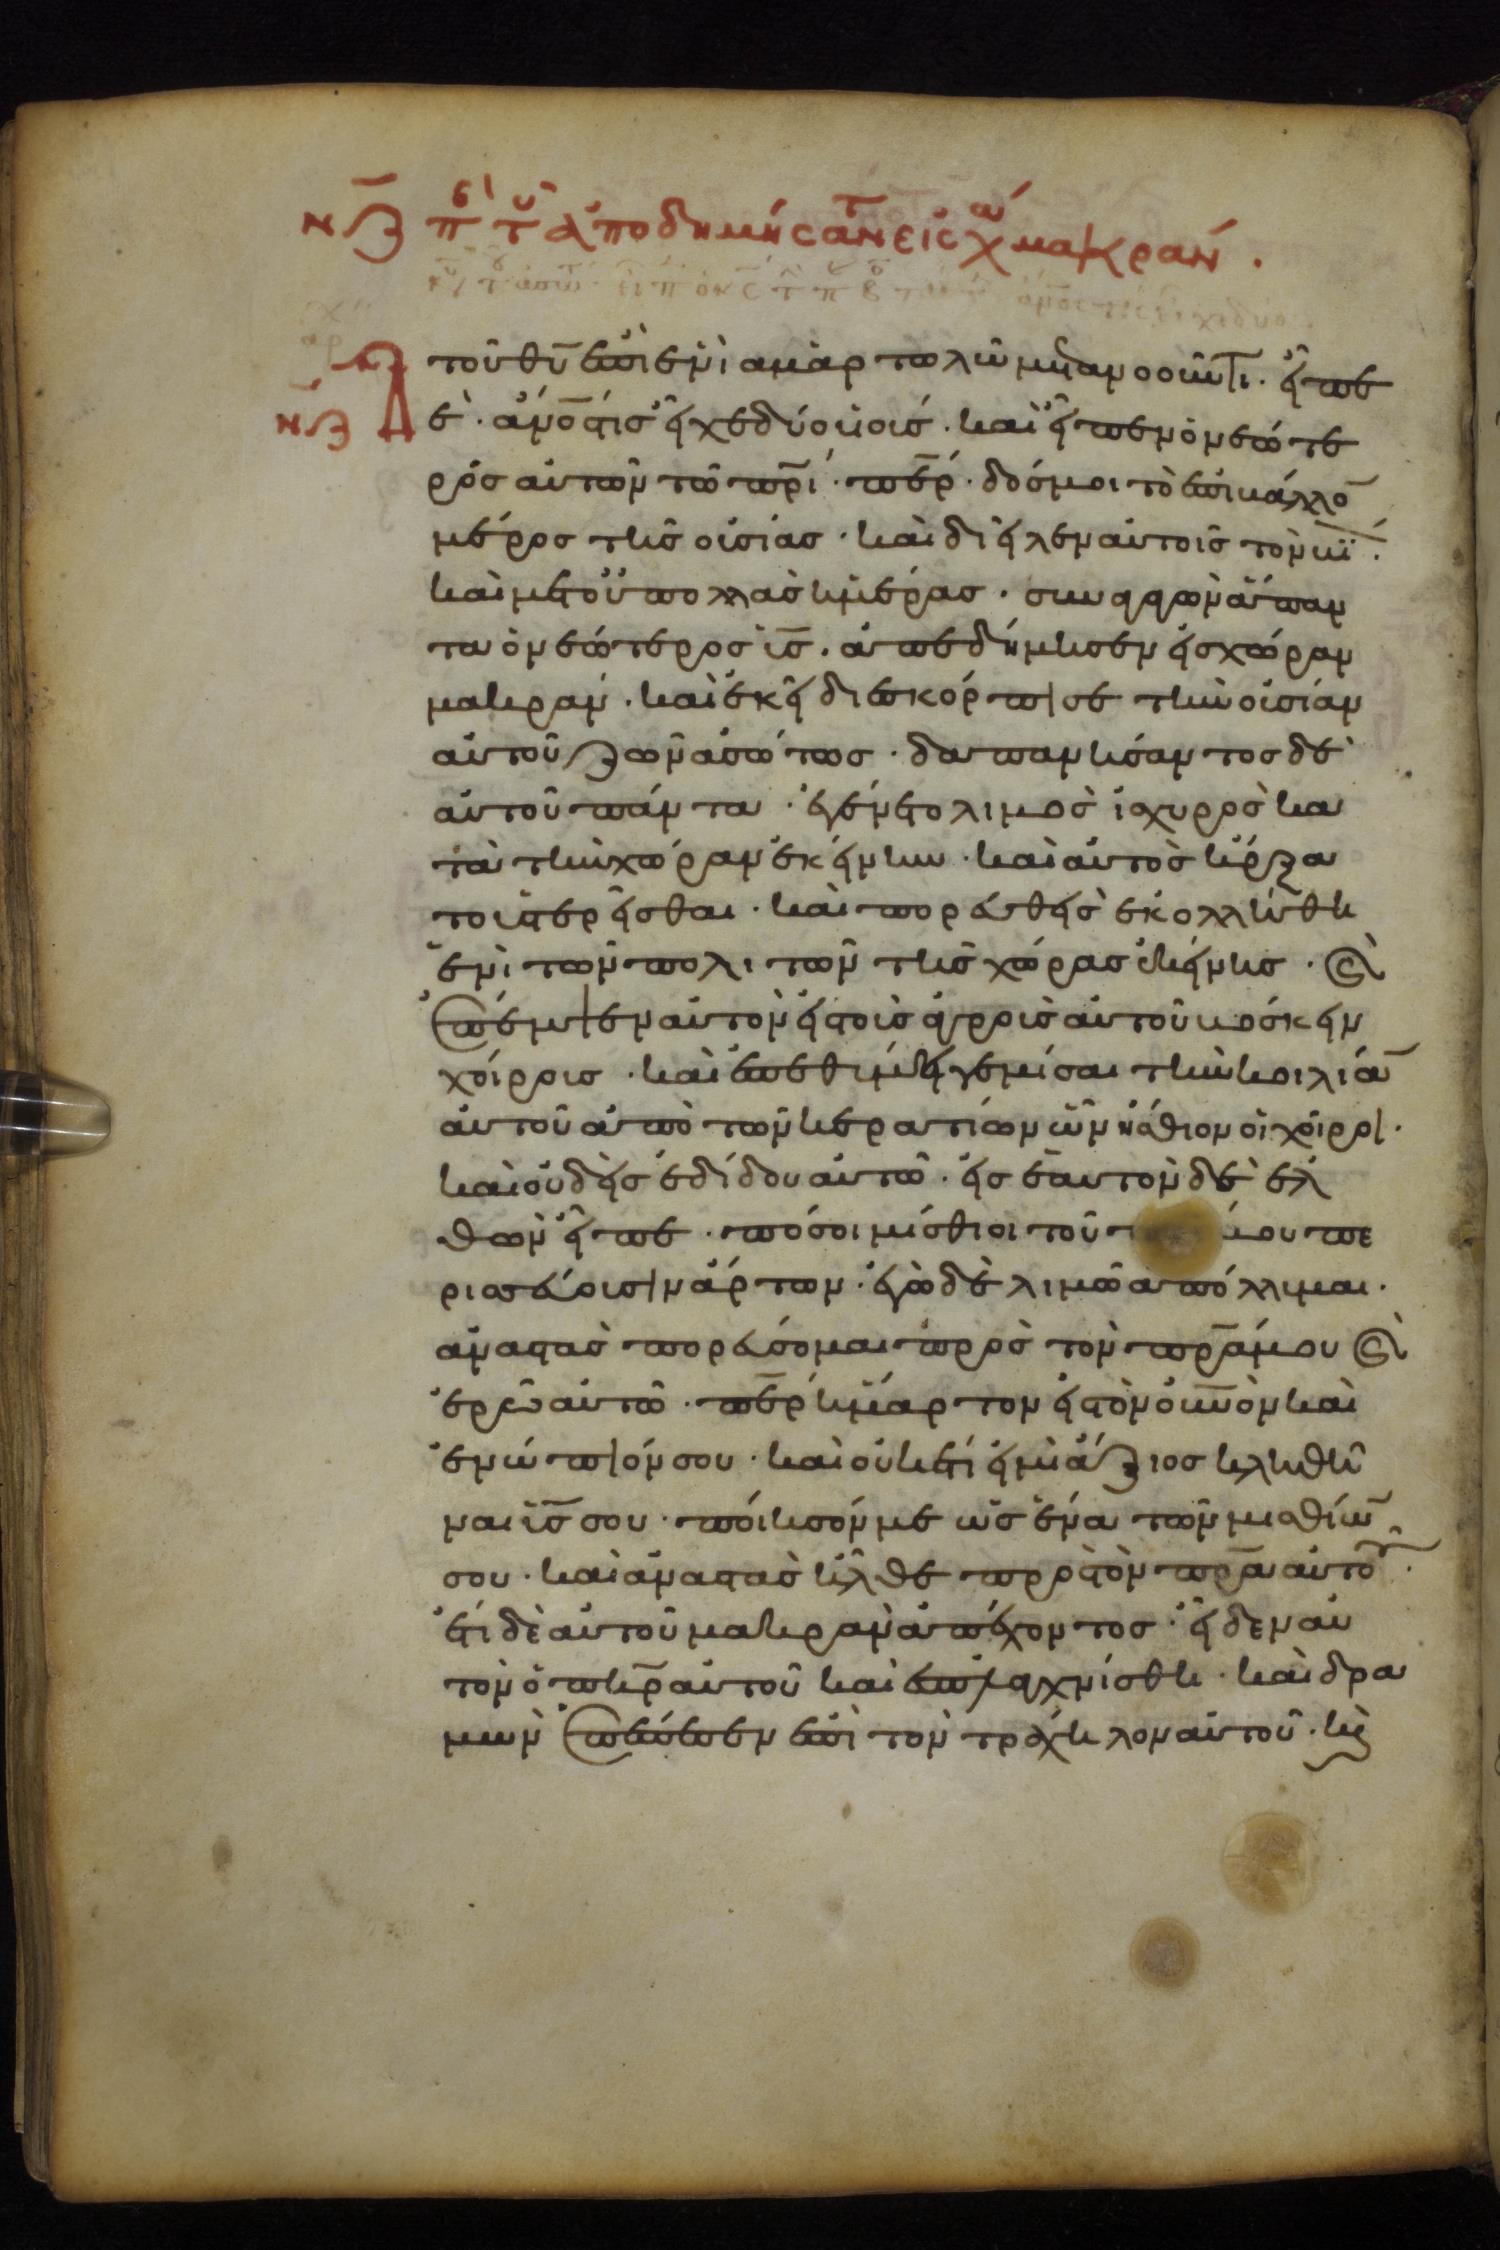 νζ πε τοῦ ἀποδημήσαντ εἰς χώ μακράν.
τοῦ θυ ἐπὶ ἑνὶ ἁμαρτωλῶ μετανοοῦντι. εἶπε
δέ. ἀνος τις εἶχε δύο υἱούς. καὶ εἶπεν ὁ νεώτε
ρος αὐτῶν τῶ πρι. περ. δός μοι τὸ ἐπιβάλλον
μέρος τῆς οὐσίας. καὶ διεῖλεν αὐτοῖς τὸν βίον.
καὶ μετ οὐ πολλὰς ἡμέρας. συναγαγὼν ἅπαν
τα ὁ νεώτερος υς. ἀπεδήμησεν εἰς χώραν
μακράν. καὶ ἐκεῖ διεσκόρπισε τὴν οὐσίαν
αὐτοῦ ζῶν ἀσώτως. δαπανήσαντος δὲ
αὐτοῦ πάντα. ἐγένετο λιμὸς ἰσχυρὸς κα
τὰ τὴν χώραν ἐκείνην. καὶ αὐτὸς ἤρξα
το ὑστερεῖσθαι. καὶ πορευθεὶς ἐκολλήθη
ἑνὶ τῶν πολιτῶν τῆς χώρας ἐκείνης. καὶ
ἔπεμψεν αὐτὸν εἰς τοὺς ἀγροὺς αὐτοῦ βόσκειν
χοίρους. καὶ ἐπεθύμει γεμίσαι τὴν κοιλίαν
αὐτοῦ ἀπὸ τῶν κερατίων ὧν ἤσθιον οἱ χοῖροι.
καὶ οὐδεὶς ἐδίδου αὐτῶ. εἰς ἑαυτὸν δὲ ἐλ
θὼν εἶπε. πόσοι μίσθιοι τοῦ μου πε
ρισσεύουσιν ἄρτων. ἐγὼ δὲ λιμῶ ἀπόλλυμαι.
ἀναστὰς πορεύσομαι πρὸς τὸν πρα μου καὶ
ἐρῶ αὐτῶ. περ ἥμαρτον εἰς τὸν οὐνὸν καὶ
ἐνώπιόν σου. καὶ οὐκέτι εἰμὶ ἄξιος κληθῆ
ναι υς σου. ποίησόν με ὡς ἕνα τῶν μισθίων
σου. καὶ ἀναστὰς ἦλθε πρὸς τὸν πρα αὐτοῦ.
ἔτι δὲ αὐτοῦ μακρὰν ἀπέχοντος. εἶδεν αὐ
τὸν ὁ πηρ αὐτοῦ καὶ ἐσπλαγχνίσθη. καὶ δρα
μὼν ἐπέπεσεν ἐπὶ τὸν τράχηλον αὐτοῦ. καὶ